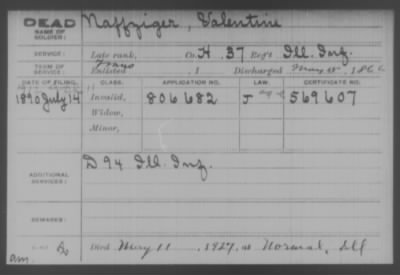 DEAD
NAME OF SOLDIER: Naffziger, Valentine
SERVICE: Late rank, Co. H. 37 Reg't Ill. Inf.
TERM OF SERVICE: Enlisted , 1 Discharged May 15, 1866
DATE OF FILING. CLASS. APPLICATION NO. LAW. CERTIFICATE NO.
1890 July 14 Invalid, 806682 J 569607
Widow,
Minor,
ADDITIONAL SERVICES: D 94 Ill. Inf.
REMARKS:
Died May 11, 1927, at Normal, Ill